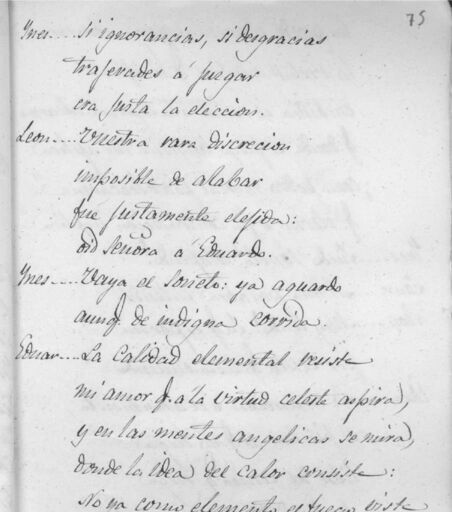 75
Ynes.... Si ignorancias, si desgracias
trajerades á juzgar
era justa la eleccion.
Leon.... Vuestra rara discrecion
imposible de alabar
fue justamente elejida:
oid Señora á Eduardo.
Ynes.... Vaya el soneto: ya aguardo
aunq. de indigna corrida.
Eduar.... La calidad elemental resiste
mi amor q. á la virtud celeste aspira,
y en las mentes angelicas se mira,
donde la idea del calor consiste:
No ya como elemento el fuego viste